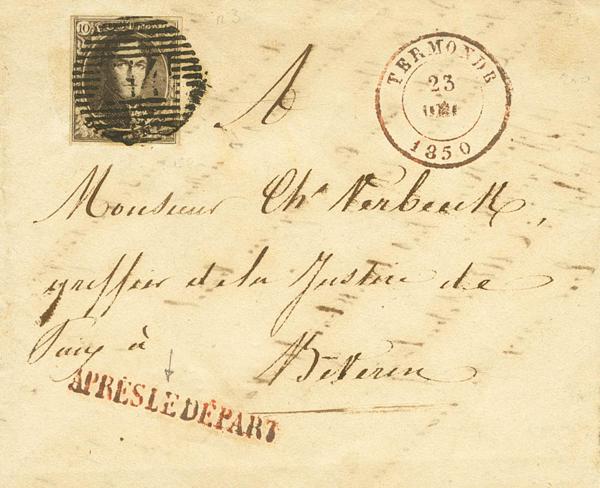 n 3
10
TERMONDE
23
1850
A
Monsieur Ch^s Verbeeck,
greffier de la Justice de
Paix à Beveren
APRÈS LE DÉPART